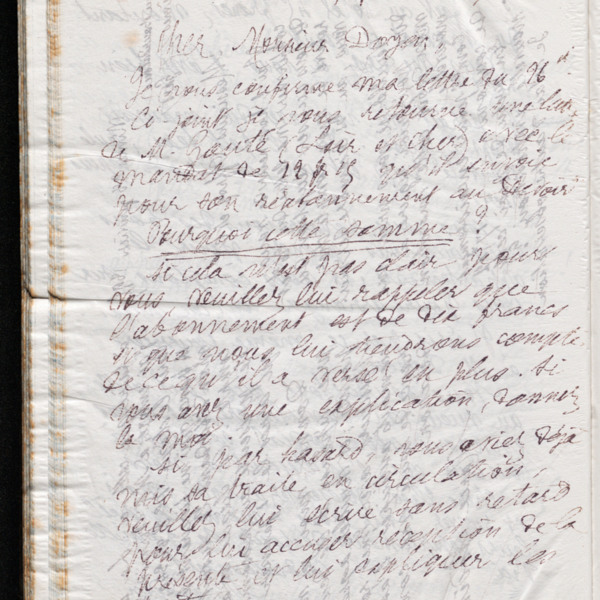 Cher Monsieur Doyen,
Je vous confirme ma lettre du 16 ct
Ci-joint je vous retourne une lettre
de M. Louir et Cher avec le
mandat de 12 f 15 qu'il envoie
pour son réabonnement au Devoir
Pourquoi cette somme ?
Si cela n'est pas clair pour
vous veuillez lui rappeler que
l'abonnement est de dix francs
et que nous lui tiendrons compte
de ce qu'il a versé en plus. Si
vous avez une explication, donnez
la moi
Si, par hasard, vous aviez déjà
mis sa traite en circulation,
veuillez lui écrire sans retard
pour lui accuser réception de la
présente et lui expliquer les